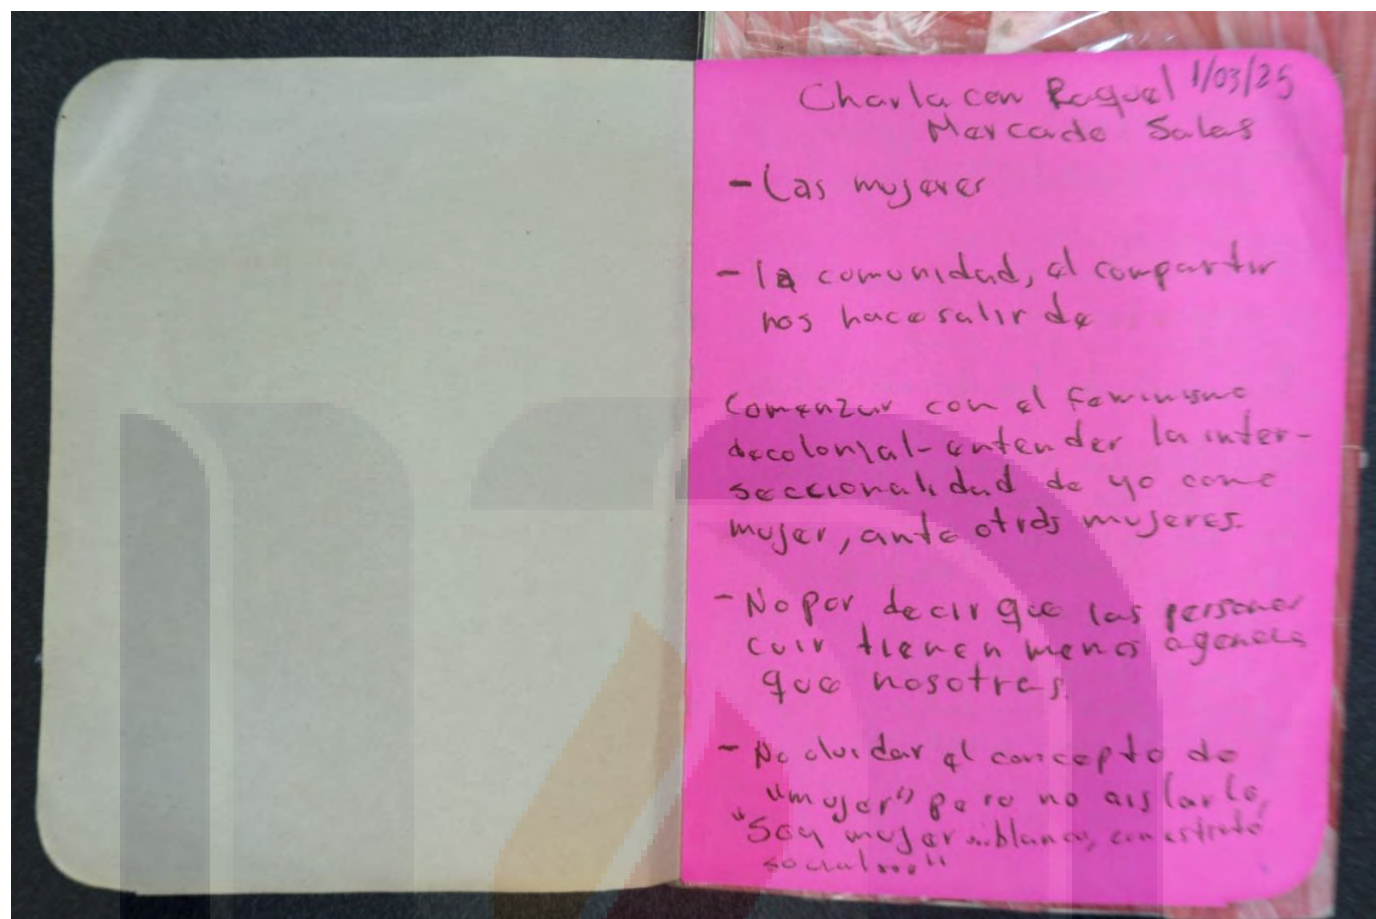 Charla con Raquel 1/03/25
Mercado Salas
- Las mujeres
- la comunidad, el compartir
nos hace salir de
Comenzar con el feminismo
decolonial - entender la inter-
seccionalidad de yo como
mujer, ante otras mujeres.
- No por decir que las personas
cuir tienen menos agencia
que nosotras.
- No olvidar el concepto de
"mujer" pero no aislarlo,
"Soy mujer... blanca, con estrato
social..."